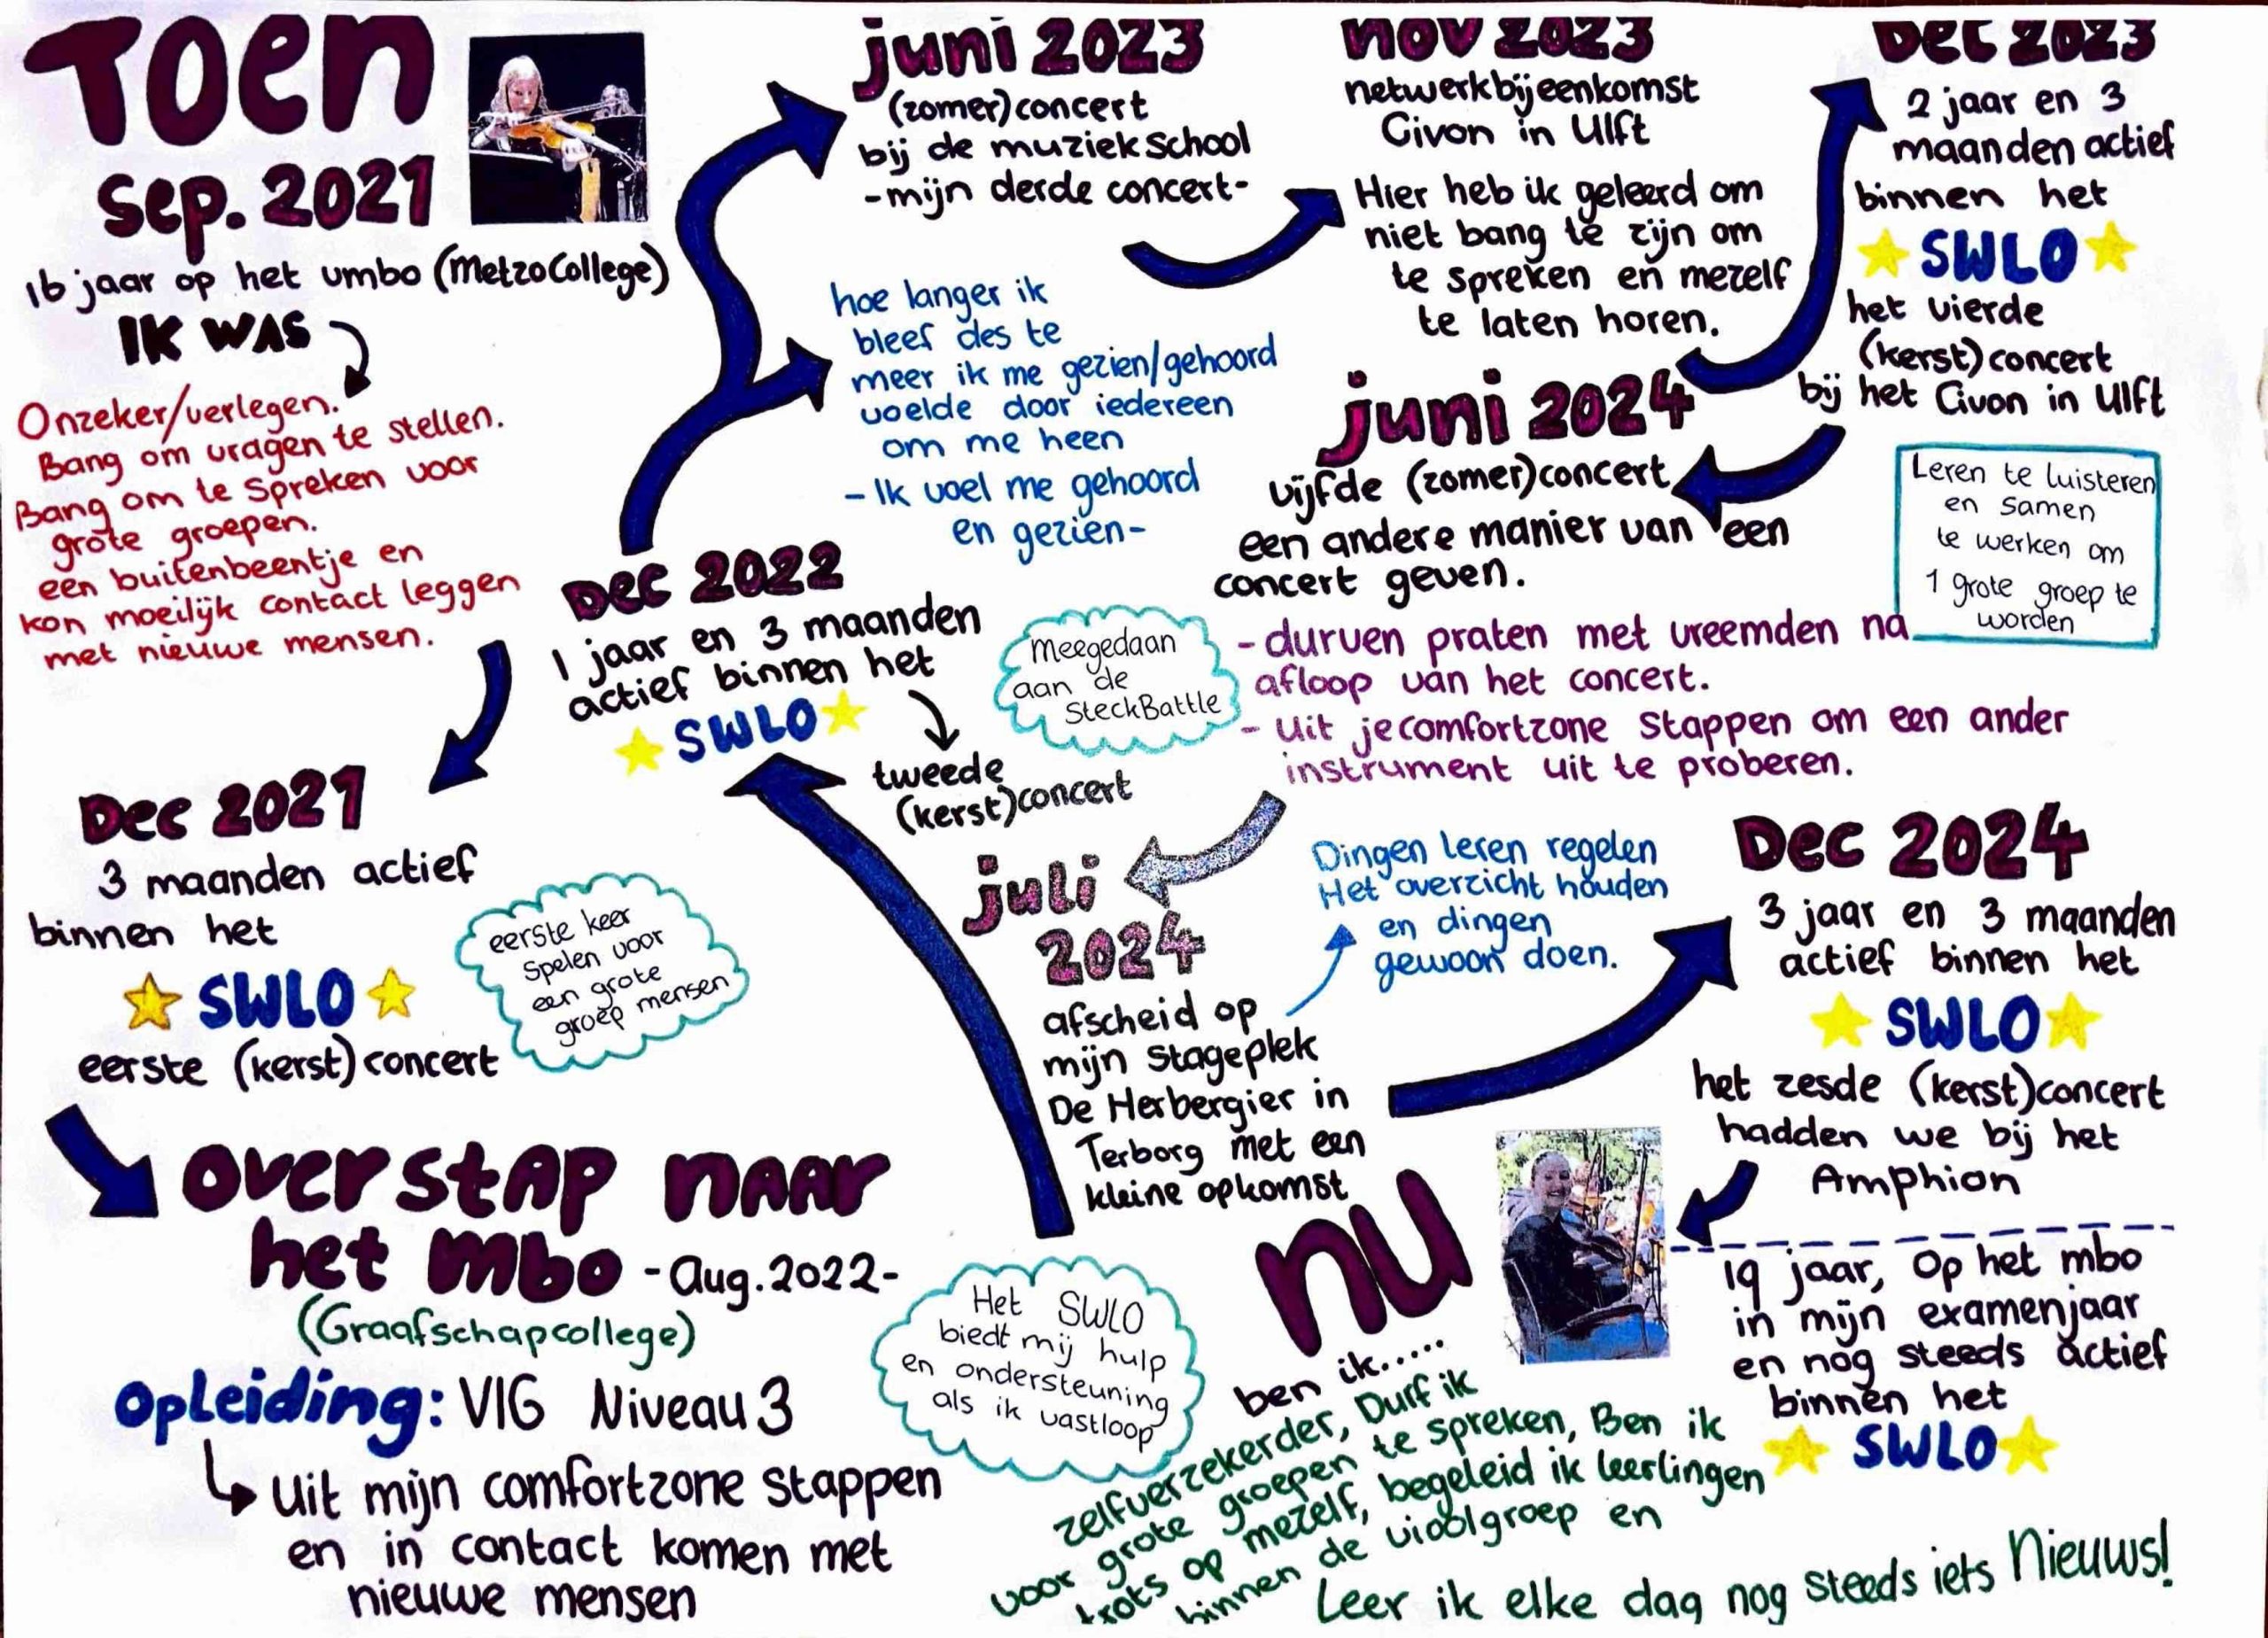 Toen
sep. 2021
16 jaar op het vmbo (Metzo College)
IK WAS
Onzeker/verlegen.
Bang om vragen te stellen.
Bang om te spreken voor
grote groepen.
een buitenbeentje en
kon moeilijk contact leggen
met nieuwe mensen.
Dec 2021
3 maanden actief
binnen het
SWLO
eerste (kerst) concert
eerste keer
spelen voor
een grote
groep mensen
overstap naar
het mbo - Aug. 2022-
(Graafschapcollege)
Opleiding: VIG Niveau 3
uit mijn comfortzone stappen
en in contact komen met
nieuwe mensen
Het SWLO
biedt mij hulp
en ondersteuning
als ik vastloop
Dec 2022
1 jaar en 3 maanden
actief binnen het
SWLO
tweede
(kerst)concert
meegedaan
aan de
SteckBattle
hoe langer ik
bleef des te
meer ik me gezien/gehoord
voelde door iedereen
om me heen
- Ik voel me gehoord
en gezien-
juni 2023
(zomer)concert
bij de muziekschool
-mijn derde concert-
nov 2023
netwerkbijeenkomst
Civon in Ulft
Hier heb ik geleerd om
niet bang te zijn om
te spreken en mezelf
te laten horen.
Dec 2023
2 jaar en 3
maanden actief
binnen het
SWLO
het vierde
(kerst)concert
bij het Civon in Ulft
Leren te luisteren
en samen
te werken om
1 grote groep te
worden
juni 2024
vijfde (zomer)concert
een andere manier van een
concert geven.
- durven praten met vreemden na
afloop van het concert.
- Uit je comfortzone stappen om een ander
instrument uit te proberen.
juli
2024
afscheid op
mijn stageplek
De Herbergier in
Terborg met een
kleine opkomst
Dingen leren regelen
Het overzicht houden
en dingen
gewoon doen.
Dec 2024
3 jaar en 3 maanden
actief binnen het
SWLO
het zesde (kerst)concert
hadden we bij het
Amphion
nu
ben ik.....
zelfverzekerder, Durf ik
voor grote groepen te spreken, Ben ik
trots op mezelf, begeleid ik leerlingen
binnen de vioolgroep en
Leer ik elke dag nog steeds iets Nieuws!
19 jaar, Op het mbo
in mijn examenjaar
en nog steeds actief
binnen het
SWLO